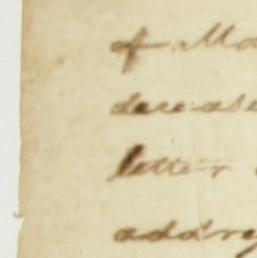 of Ma
decease
letter
addre